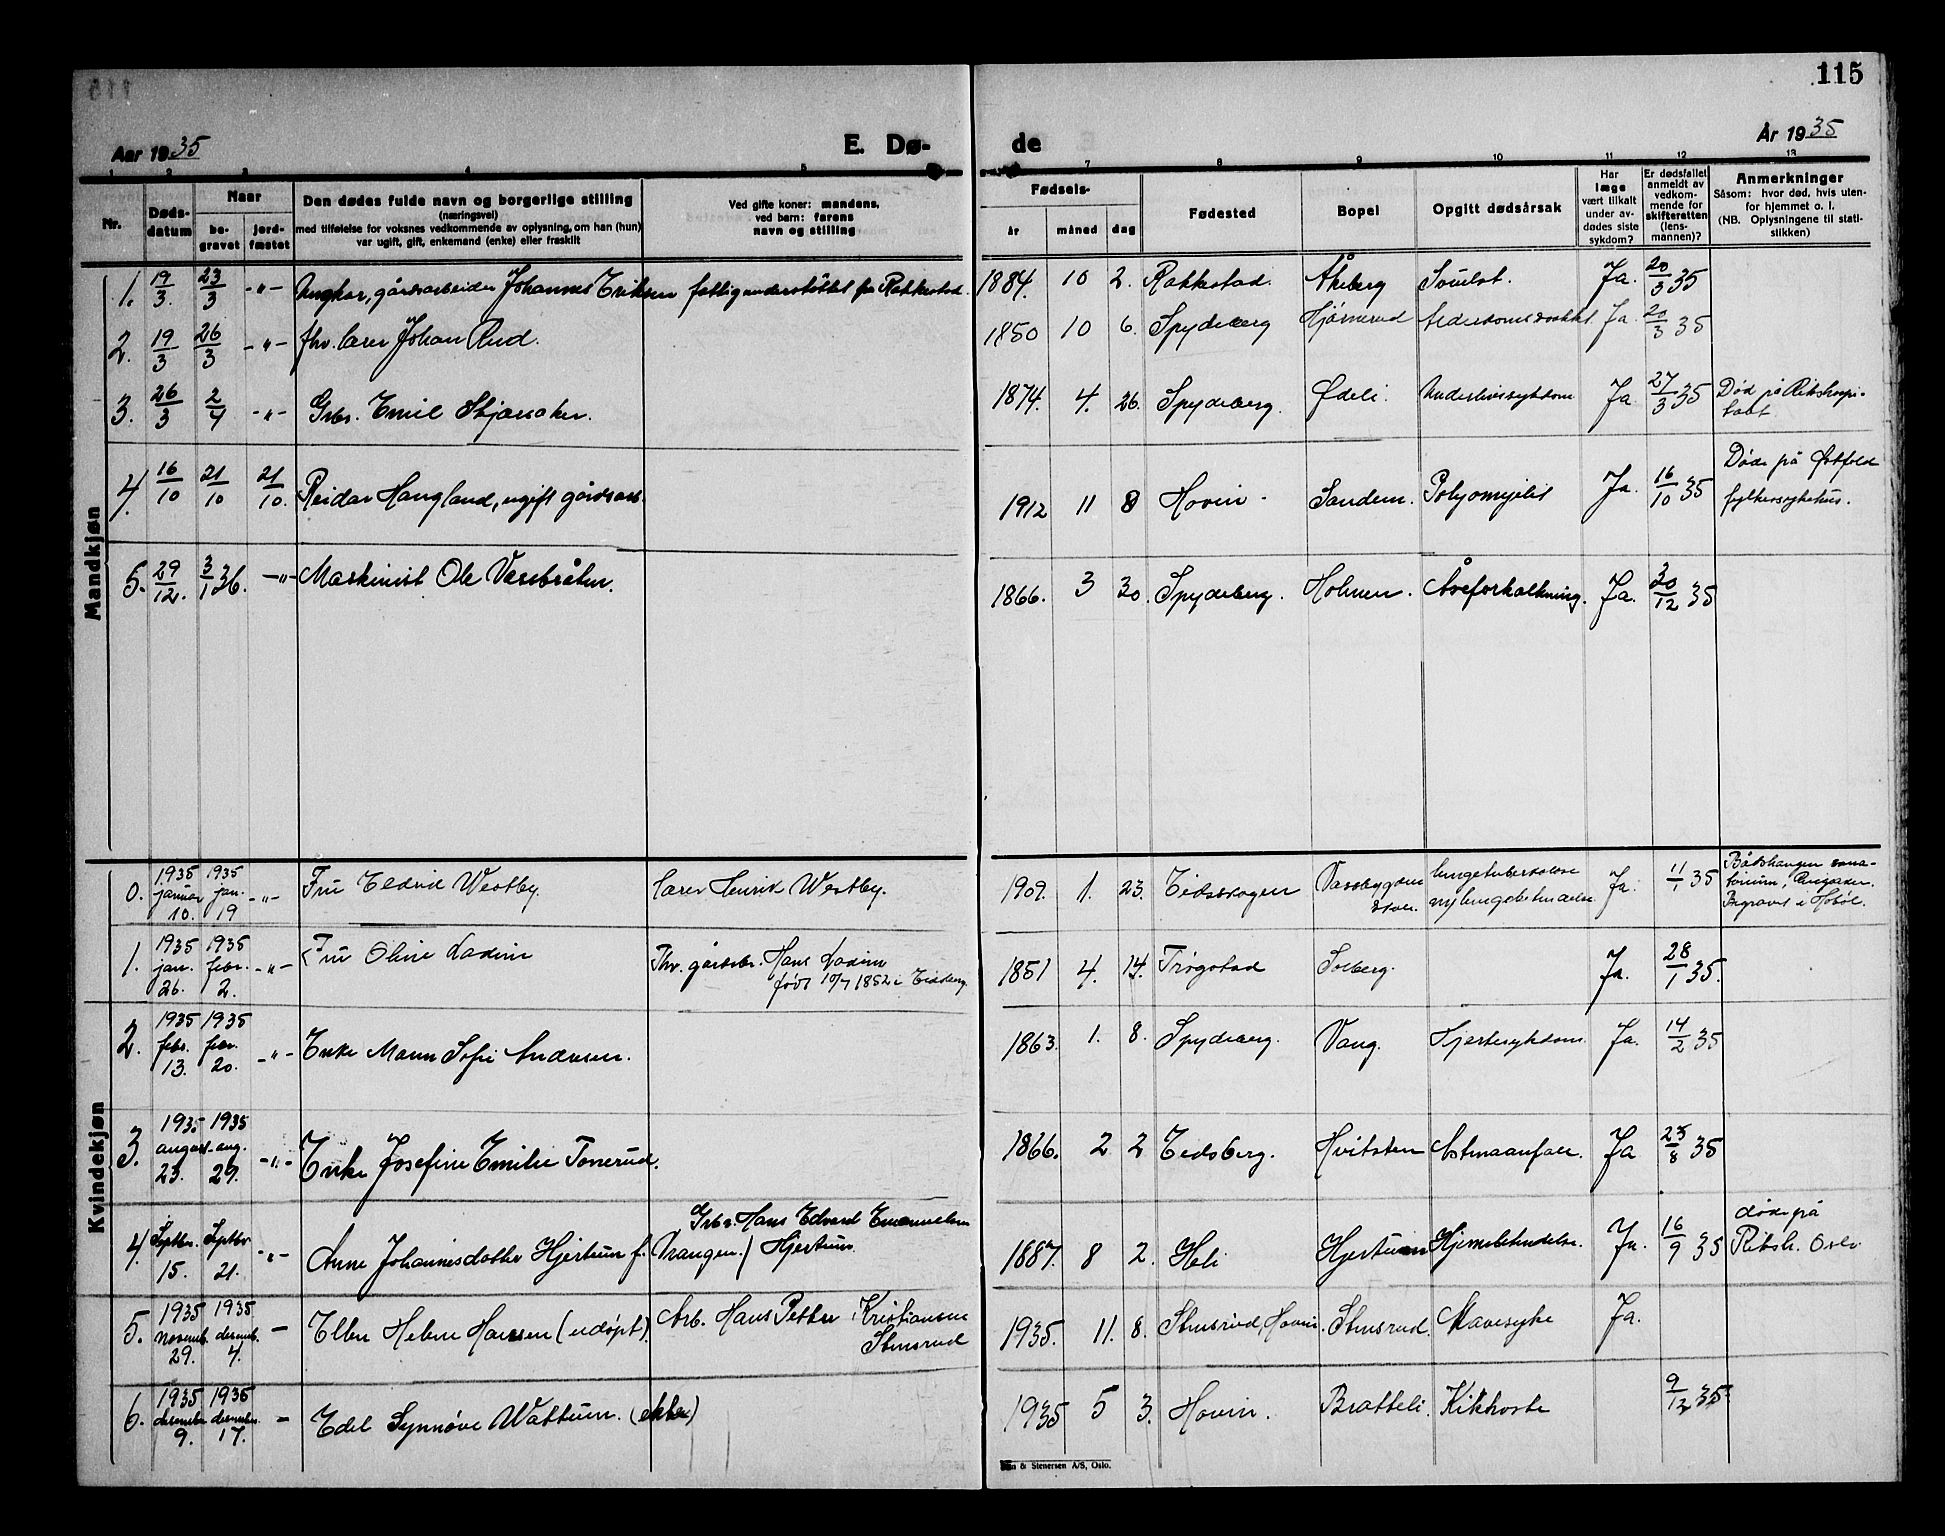 115
Aar 1935 E. Dø- de År 1935
1 2 3 4 5 7 8 9 10 11 12 13
Nr. Døds-datum Naar be-gravet jord-fæstet
Den dødes fulde navn og borgerlige stilling
(næringsvei)
med tilføielse for voksnes vedkommende av oplysning, om han (hun)
var ugift, gift, enkemand (enke) eller fraskilt
Ved gifte koner: mandens,
ved børn: farens
navn og stilling
Fødsels-
år måned dag
Fødested
Bopel
Opgitt dødsårsak
Har
læge
vært tilkalt
under av-
dødes siste
sykdom?
Er dødsfallet
anmeldt av
vedkom-
mende for
skifteretten
(lens-
mannen)?
Anmerkninger
Såsom: hvor død, hvis uten-
for hjemmet o. l.
(NB. Oplysningene til stati-
stikken)
Mandkjøn
1. 19/3. 23/3 -"- Ungkar, gårdsarbeider Johannes Eriksen fattigunderstøttet fra Rakkestad. 1884. 10 2. Rakkestad. Åkeberg Ja. 20/3 35
2. 19/3 26/3 -"- fhv. lærer Johan Rud. 1850 10 6. Spydeberg Hjørnerud Ja. 20/3 35
3. 26/3 2/4 -"- Grbr. Emil Skjæraker. 1874. 4. 26. Spydeberg. Ødeli. Underlivssykdom Ja 27/3 35 Død på Rikshospi-
talet
4. 16/10 21/10 21/10. Reidar Haugland, ugift gårdsarb. 1912 11 8 Hovin - Sandem. Polyomyelit Ja. 16/10 35 Døde på Østfold
fylkessykehus.
5. 29/12. 3/1 36. -"- Maskinist Ole Vassbråten. 1866. 3 30. Spydeberg. Holmen. Åreforkalkning. Ja. 30/12 35
Kvindekjøn
0. 1935 januar 10. 1935 jan. 19 -"- Fru Eldrid Westby. Lærer Henrik Westby. 1909. 1. 23. Eidsskogen Vassbygden lungetuberkulose Ja. 11/1 35
Begravet i Hobøl.
1. 1935 jan. 26. 1935 febr. 2. -"- Fru Oline Ladim Fhv. gårdbr. Hans Ladim
født 10/7 1852 i Eidsberg. 1851 4. 14. Trøgstad Solberg. Ja. 28/1 35.
2. 1935 febr. 13. 1935 febr. 20. -"- Enke Maren Sofie Andersen. 1863. 1. 8. Spydeberg. Vang. Hjertesykdom Ja. 14/2 35
3. 1935 august 23. 1935 aug. 29. -"- Enke Josefine Emilie Tonerud. 1866. 2 2 Eidsberg. Hvitsten Astmaanfall. Ja 23/8 35
4. Septbr. 15. Septbr 21. -"- Anne Johannesdatter Hjertum f. Vrangen. / Grbr. Hans Edvard Emanuelsen
Hjertum. 1887. 8 2. Heli Hjertum Hjernebetendelse. Ja. 16/9 35 døde på
Riksh. Oslo
5. 1935 novemb. 29. 1935 desemb. 4. - Ellen Helene Hansen (udøpt). Arb. Hans Petter Kristiansen
Stensrud 1935. 11. 8. Stensrud, Hovin. Stensrud. Mavesyke Ja.
6. 1935 desember 9. 1935 desember. 17. - Edel Synnøve Wattum. (ekte) 1935 5 3. Hovin. Bratteli. Kikhoste 9/12 35
& Stenersen A/S, Oslo.